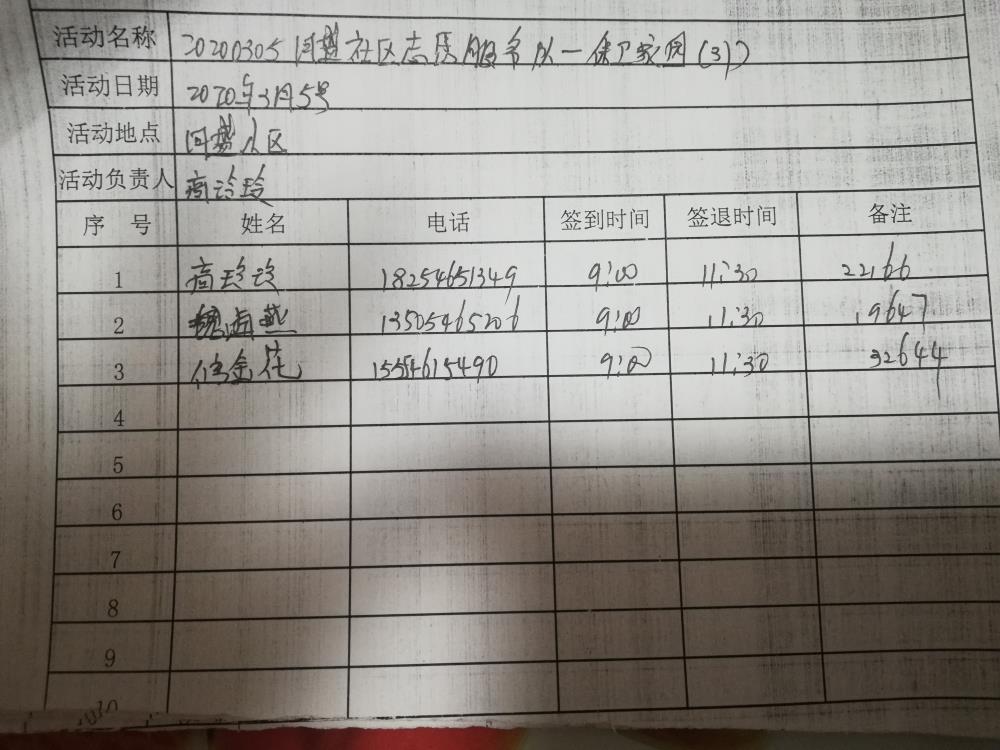 活动名称 20200305 社区志愿服务队一保卫家园(3)
活动日期 2020年3月5号
活动地点 小区
活动负责人 玲玲
序 号 姓名 电话 签到时间 签退时间 备注
1 玲玲 18254651349 9:00 11:30 22166
2 13505465206 9:00 11:30 19647
3 金花 15554615490 9:00 11:30 32644
4
5
6
7
8
9